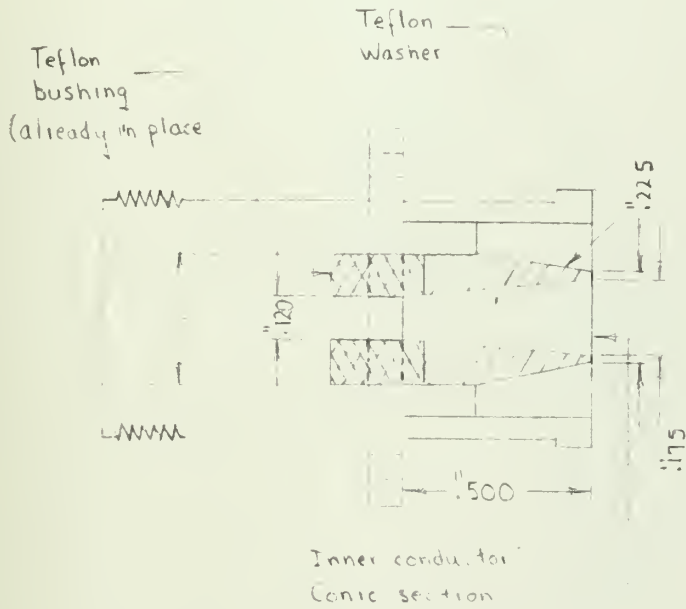 Teflon
washer
Teflon
bushing
(already in place
.225"
.120"
.175"
.500"
Inner conductor
Conic section